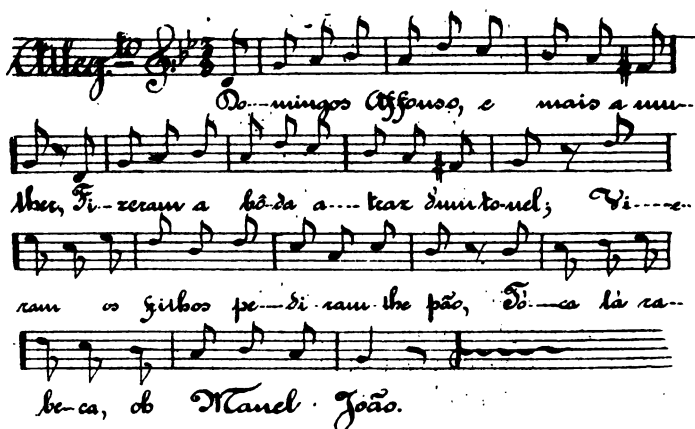 Alleg.to
Do--mingos Affonso, e mais a mu--
lher, Fi--zeram a bôda a----traz d'um to-nel; Vi----e--
ram os filhos pe---di-ram-lhe pão, Tó---ca lá ra--
be--ca, oh Manel João.